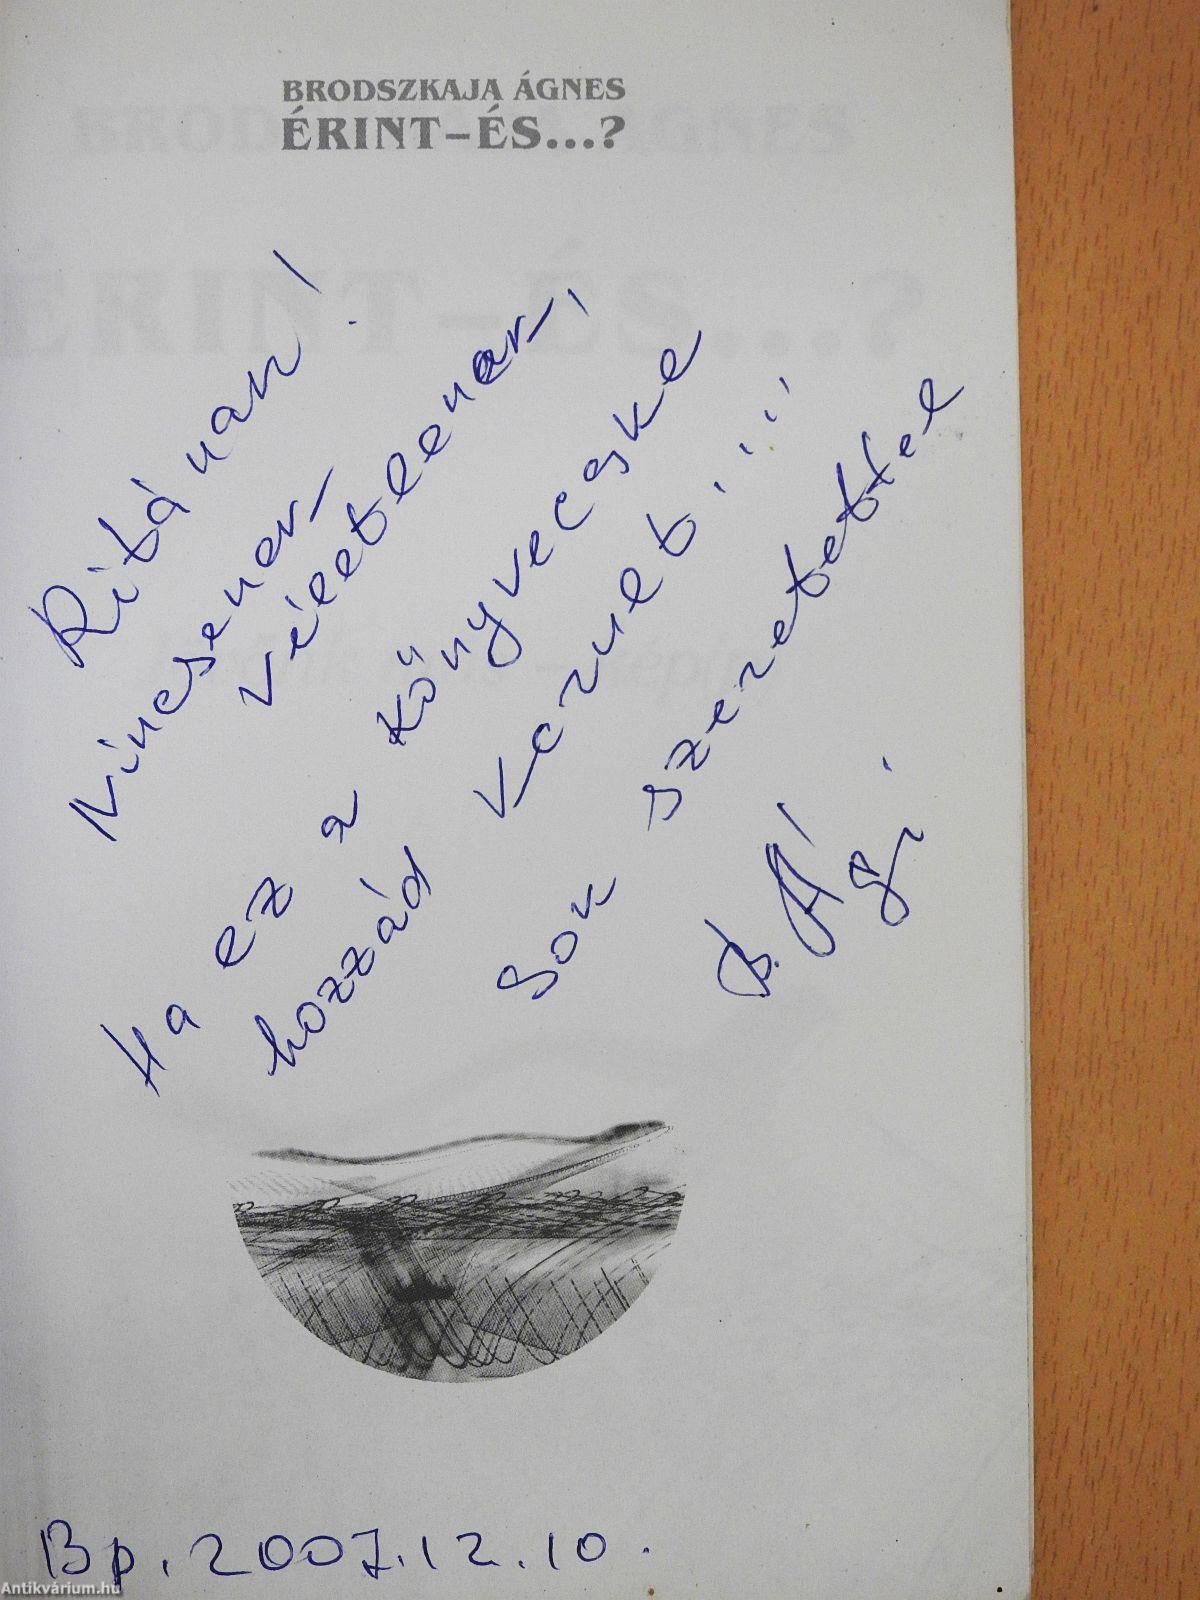 BRODSZKAJA ÁGNES
ÉRINT–ÉS...?
Ritának!
Nincsenek
véletlenek,
Ha ez a könyvecske
hozzád került.....
Sok szeretettel
B. Ági
Bp. 2007.12.10.
Antikvárium.hu